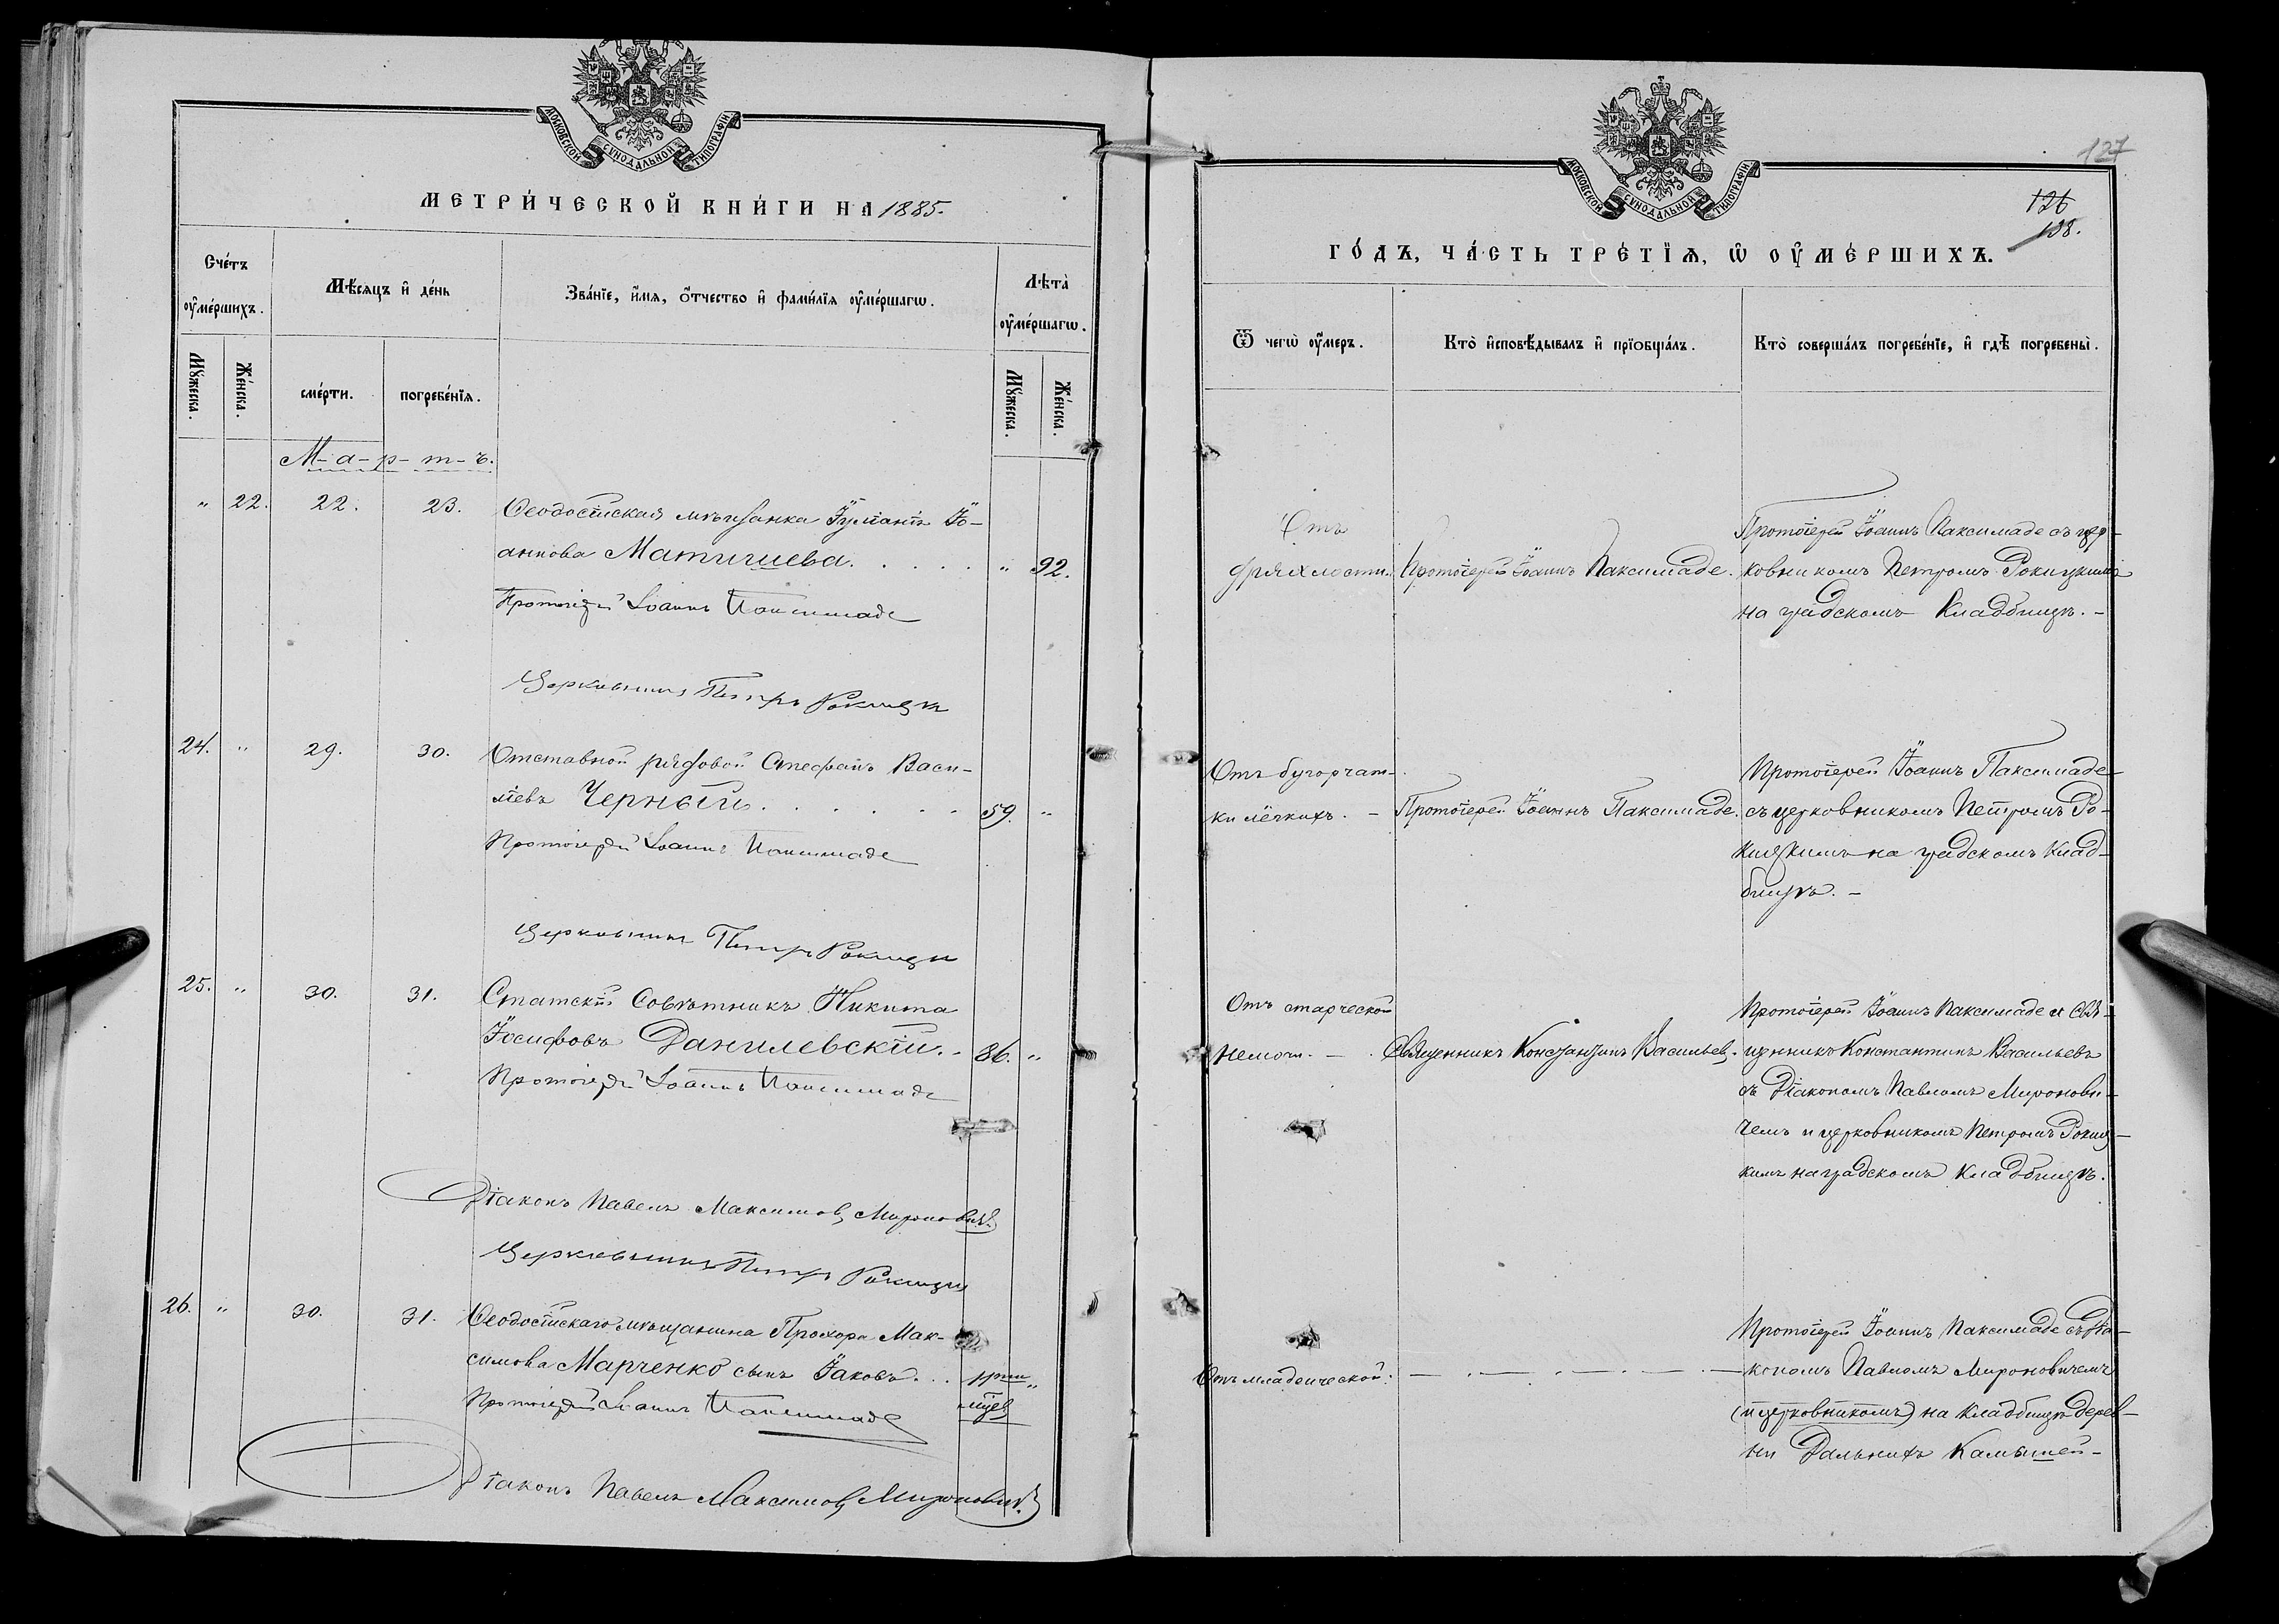 МОСКОВСКОЙ СѴНОДАЛЬНОЙ ТИПОГРАФІИ
МЕТРИ́ЧЕСКОЙ КНИ́ГИ НА 1885.
Сче́тъ ᲂу҆ме́ршихъ.
Мѣ́сяцъ и҆ де́нь
Зва́нїе, и҆́мя, ѻ҆́тчество и҆ фами́лїя ᲂу҆ме́ршагѡ.
Лѣта̀ ᲂу҆ме́ршагѡ.
Мꙋ́жеска.
Же́нска.
сме́рти.
погребе́нїя.
Мꙋ́жеска.
Же́нска.
М-а-р-т-ъ.
" 22. 22. 23. Ѳеодосійская мѣщанка Іо-
аннова Матичиева. . . . . " 92.
Протоіерей Іоаннъ Паксимаде
Церковникъ Петръ Рокицки
24. " 29. 30. Отставной рядовой Стефанъ Васи-
ліевъ Черный . . . . . . 59. "
Протоіерей Іоаннъ Паксимаде
Церковникъ Петръ Рокицки
25. " 30. 31. Статскій Совѣтникъ Никита
Іосифовъ Данилевскій. - 86. "
Протоіерей Іоаннъ Паксимаде
Діаконъ Павелъ Максимовъ Мироновичъ
Церковникъ Петръ Рокицки
26. " 30. 31. Ѳеодосійскаго мѣщанина Прохора Мак-
симова Марченко сынъ Іаковъ. . . "
Протоіерей Іоаннъ Паксимаде
Діаконъ Павелъ Максимовъ Мироновичъ.
127
МОСКОВСКОЙ СѴНОДАЛЬНОЙ ТИПОГРАФІИ
126
138.
ГО́ДЪ, ЧА́СТЬ ТРЕ́ТЇѦ, Ѡ҆ ОУ҆МЕ́РШИХЪ.
Ѿ чегѡ̀ ᲂу҆́меръ.
Кто̀ и҆сповѣ́дывалъ и҆ прїобща́лъ.
Кто̀ соверша́лъ погребе́нїе, и҆ гдѣ̀ погребены̀.
Отъ
дряхлости.
Протоіерей Іоаннъ Паксимаде.
Протоіерей Іоаннъ Паксимаде съ цер-
ковникомъ Петромъ Рокицкимъ
на градскомъ Кладбищѣ. -
Отъ бугорчат-
ки лёгкихъ. -
Протоіерей Іоаннъ Паксимаде.
Протоіерей Іоаннъ Паксимаде
съ церковникомъ Петромъ Ро-
кицкимъ на градскомъ Клад-
бищѣ. -
Отъ старческой
немочи. -
Священникъ Константинъ Васильевъ.
Протоіерей Іоаннъ Паксимаде и Свя-
щенникъ Константинъ Васильевъ
съ Діакономъ Павломъ Миронови-
чемъ и церковникомъ Петромъ Рокиц-
кимъ на градскомъ Кладбищѣ.
Отъ младенческой.
Протоіерей Іоаннъ Паксимаде съ Діа-
кономъ Павломъ Мироновичемъ
(и церковникомъ) на кладбищѣ дерев-
ни Дальнихъ Камышей -